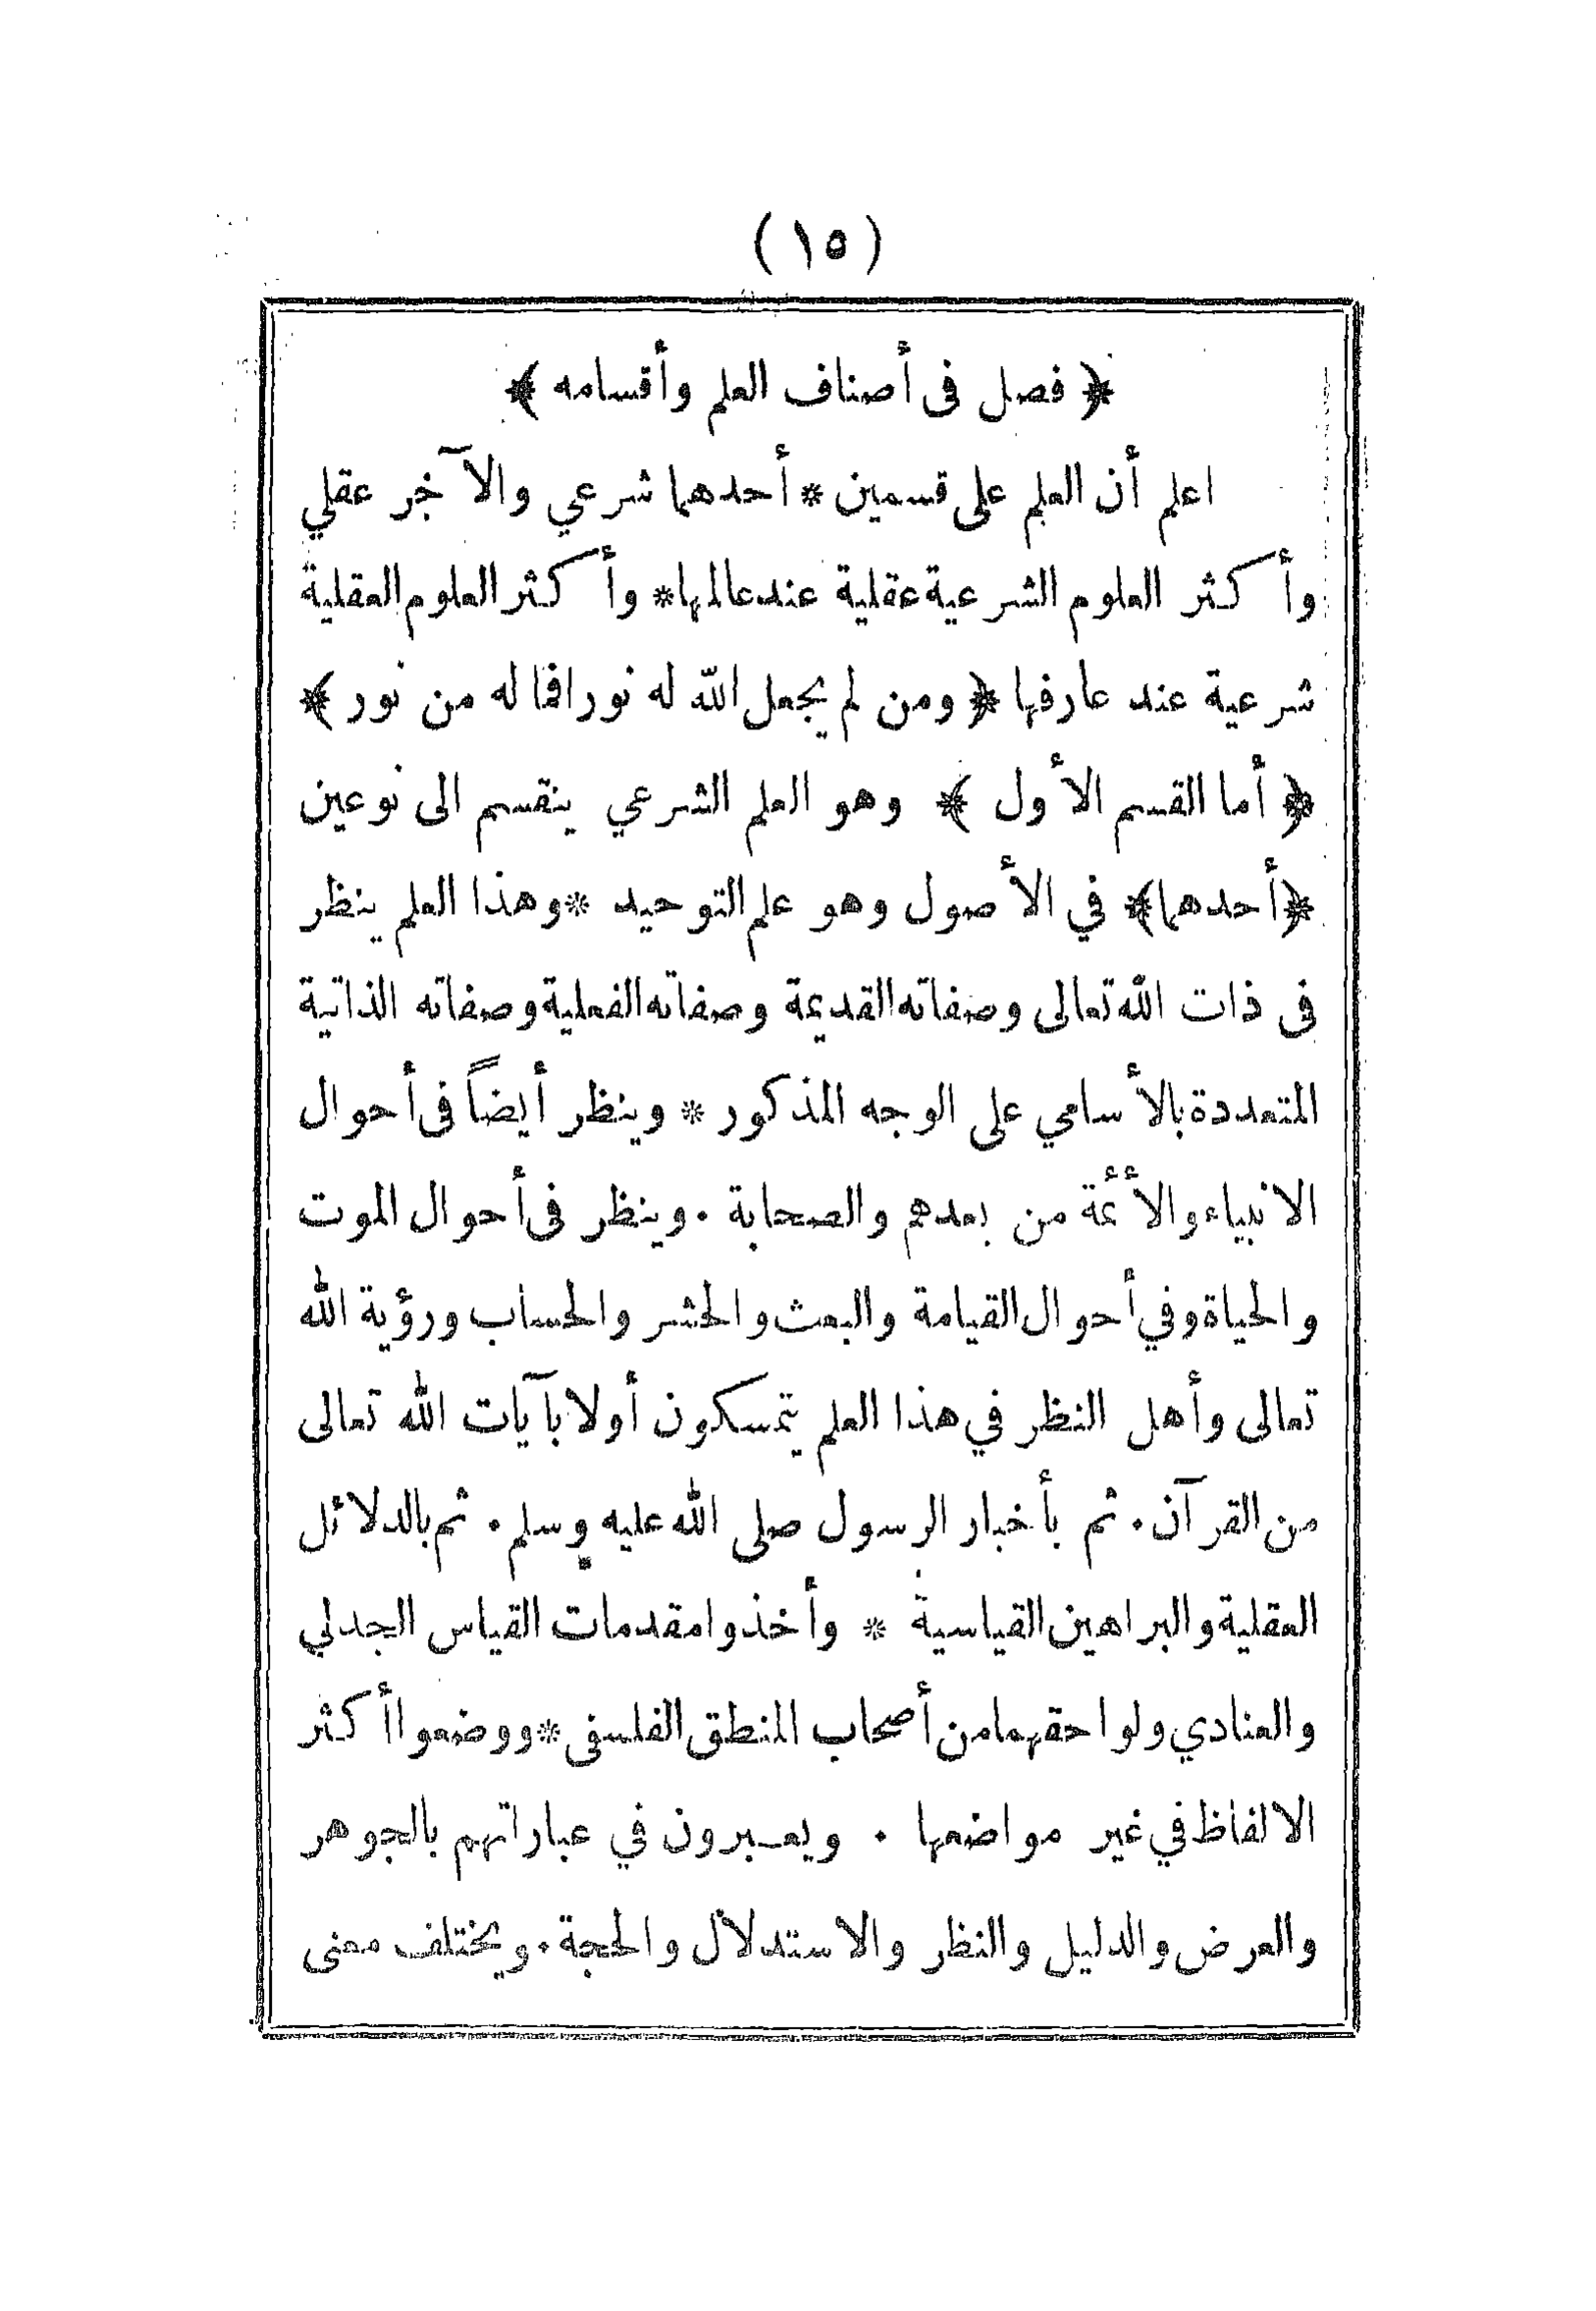 ( ١٥ )
﴿ فصل فى أصناف العلم وأقسامه ﴾
اعلم أن العلم على قسمين * أحدهما شرعي والآخر عقلي
وأكثر العلوم الشرعية عقلية عند عالمها * وأكثر العلوم العقلية
شرعية عند عارفها ﴿ ومن لم يجعل الله له نورا فما له من نور ﴾
﴿ أما القسم الأول ﴾ وهو العلم الشرعي ينقسم الى نوعين
﴿ أحدهما ﴾ في الأصول وهو علم التوحيد * وهذا العلم ينظر
فى ذات الله تعالى وصفاته القديمة وصفاته الفعلية وصفاته الذاتية
المتعددة بالأسامي على الوجه المذكور * وينظر أيضاً فى أحوال
الانبياء والأئمة من بعدهم والصحابة . وينظر فى أحوال الموت
والحياة وفي أحوال القيامة والبعث والحشر والحساب ورؤية الله
تعالى وأهل النظر في هذا العلم يتمسكون أولا بآيات الله تعالى
من القرآن . ثم بأخبار الرسول صلى الله عليه وسلم . ثم بالدلائل
العقلية والبراهين القياسية * وأخذوا مقدمات القياس الجدلي
والعنادي ولواحقهما من أصحاب المنطق الفلسفى * ووضعوا أكثر
الالفاظ في غير مواضعها . ويعبرون في عباراتهم بالجوهر
والعرض والدليل والنظر والاستدلال والحجة . ويختلف معنى